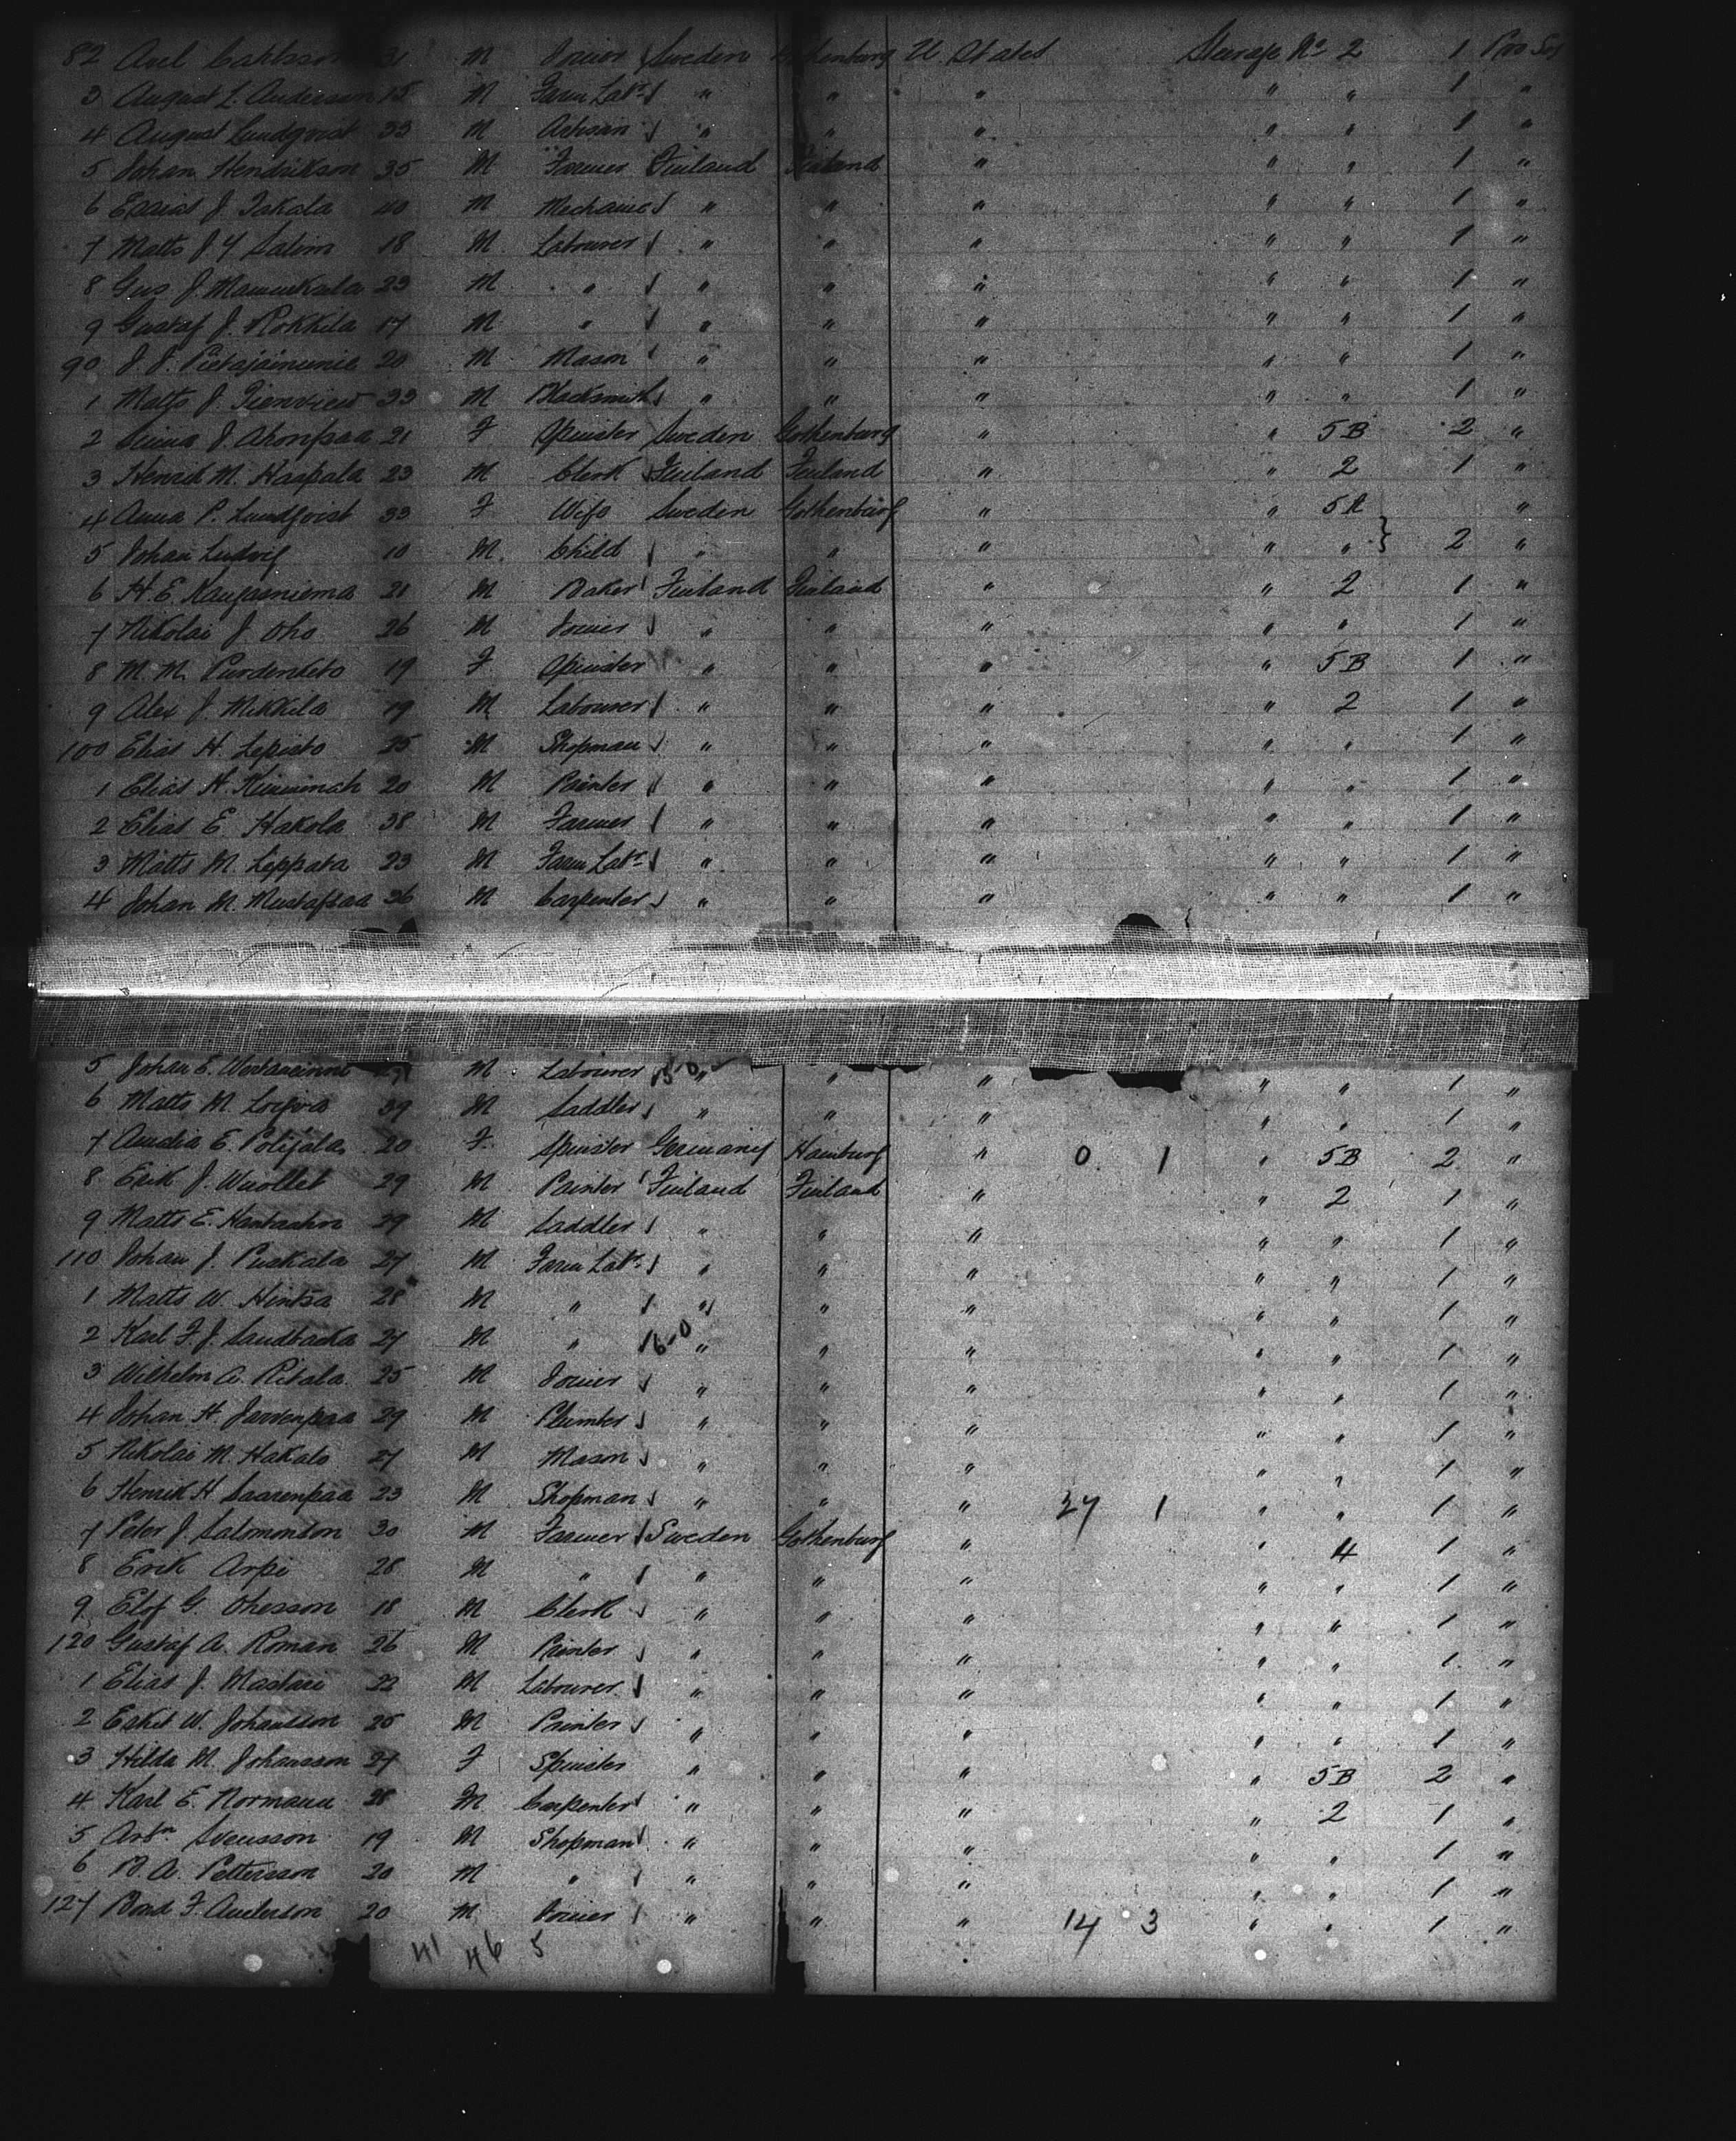 82 Axel Carlsson 31 M Joiner Sweden Gothenburg U. States Steerage No 2 1 Pro Ses
3 August L. Anderson 15 M Farm Labr " " " " " 1 "
4 August Lundqvist 33 M Artisan " " " " " 1 "
5 Johan Hendrikson 35 M Farmer Finland Finland " " " 1 "
6 Esaias J. Takala 40 M Mechanic " " " " " 1 "
7 Matts J. Y Salim 18 M Labourer " " " " " 1 "
8 Gus J. 23 M " " " " " " 1 "
9 Gustaf J. Rokkila 17 M " " " " " " 1 "
90 J. J. 20 M Mason " " " " " 1 "
1 Matts J. 33 M Blacksmith " " " " " 1 "
2 J. Ahonpaa 21 F Spinster Sweden Gothenburg " " 5B 2 "
3 Henrik M. Haapala 23 M Clerk Finland Finland " " 2 1 "
4 Anna P. Lundqvist 33 F Wife Sweden Gothenburg " " 5A "
5 Johan Ludvig 10 M. Child " " " " " } 2 "
6 H. E. Kaujasniema 21 M Baker Finland Finland " " 2 1 "
7 Nikolai J. Oho 26 M Joiner " " " " " 1 "
8 M. M. 19 F Spinster " " " " 5B 1 "
9 Alex J. Mikkila 19 M Labourer " " " " 2 1 "
100 Elias H. Lepisto 25 M Shopman " " " " " 1 "
1 Elias H. 20 M Painter " " " " " 1 "
2 Elias E. Hakola 38 M Farmer " " " " " 1 "
3 Matts M. Leppala 23 M Farm Labr " " " " " 1 "
4 Johan M. Mustapaa 36 M Carpenter " " " " " 1 "
5 Johan E. M Labourer 15-0 " " " " " 1 "
6 Matts M. 39 M Saddler " " " " " 1 "
7 Amalia E. Polijala 20 F. Spinster Germany Hamburg " 0 1 " 5B 2 "
8 Erik J. Wuollet 29 M Painter Finland Finland " " 2 1 "
9 Matts E. 29 M Saddler " " " " " 1 "
110 Johan J. Puskala 27 M Farm Labr " " " " " 1 "
1 Matts W. Hintsa 28 M " " " " " " 1 "
2 Karl F. J. Sandbacka 27 M " 16-0 " " " " " 1 "
3 Wilhelm A. Ritala 25 M Joiner " " " " " 1 "
4 Johan H. Jarvenpaa 29 M Plumber " " " " " 1 "
5 Nikolai M. Hakalo 27 M Mason " " " " " 1 "
6 Henrik H Saarenpaa 23 M Shopman " " " 27 1 " " 1 "
7 Peter J. Salomonson 30 M Farmer Sweden Gothenburg " " 4 1 "
8 Erik Arpi 28 M " " " " " " 1 "
9 Elof G. Ohesson 18 M Clerk " " " " " 1 "
120 Gustaf A. Roman 26 M Painter " " " " " 1 "
1 Elias J. 22 M Labourer " " " " " 1 "
2 Esket W. Johansson 25 M Painter " " " " " 1 "
3 Hilda M. Johansson 27 F Spinster " " " " 5B 2 "
4 Karl E. Normann 28 M Carpenter " " " " 2 1 "
5 Arbn Svensson 19 M Shopman " " " " " 1 "
6 A. Pettersson 20 M " " " " " " 1 "
127 F. Anderson 20 M Joiner " " " 14 3 " " 1 "
41 46 5